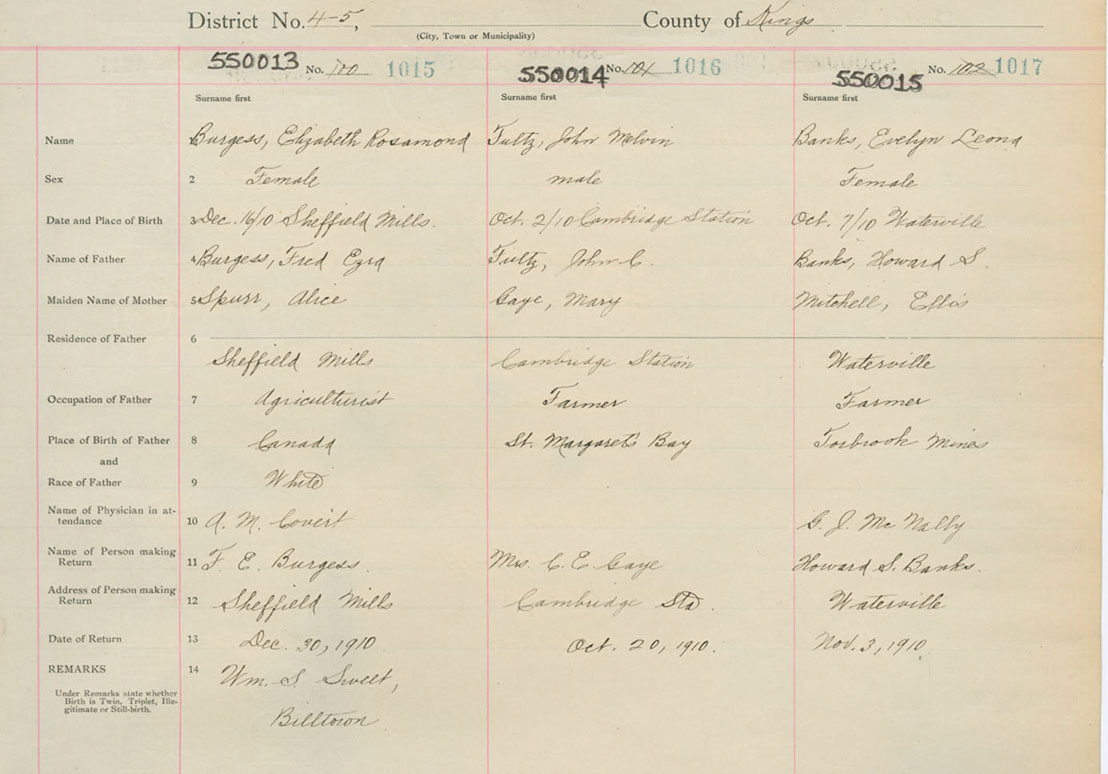 District No. 4-5, County of Kings
(City, Town or Municipality)
550013 No. 100 1015 550014 No. 101 1016 550015 No. 102 1017
Surname first Surname first Surname first
Name Burgess, Elizabeth Rosamond Fultz, John Melvin Banks, Evelyn Leona
Sex 2 Female male Female
Date and Place of Birth 3 Dec. 16/10 Sheffield Mills. Oct. 2/10 Cambridge Station Oct. 7/10 Waterville
Name of Father 4 Burgess, Fred Ezra Fultz, John C. Banks, Howard S.
Maiden Name of Mother 5 Spurr, Alice Gaye, Mary Mitchell, Effis
Residence of Father 6
Sheffield Mills Cambridge Station Waterville
Occupation of Father 7 Agriculturist Farmer Farmer
Place of Birth of Father 8 Canada St. Margaret's Bay Torbrook Mines
and
Race of Father 9 White
Name of Physician in at-
tendance 10 A. M. Covert G. J. McNally
Name of Person making
Return 11 F. E. Burgess. Mrs. C. E. Gaye Howard S. Banks.
Address of Person making
Return 12 Sheffield Mills Cambridge Sta. Waterville
Date of Return 13 Dec. 30, 1910. Oct. 20, 1910. Nov. 3, 1910
REMARKS 14 Wm. S. Sweet,
Under Remarks state whether
Birth is Twin, Triplet, Ille-
gitimate or Still-birth.
Billtown